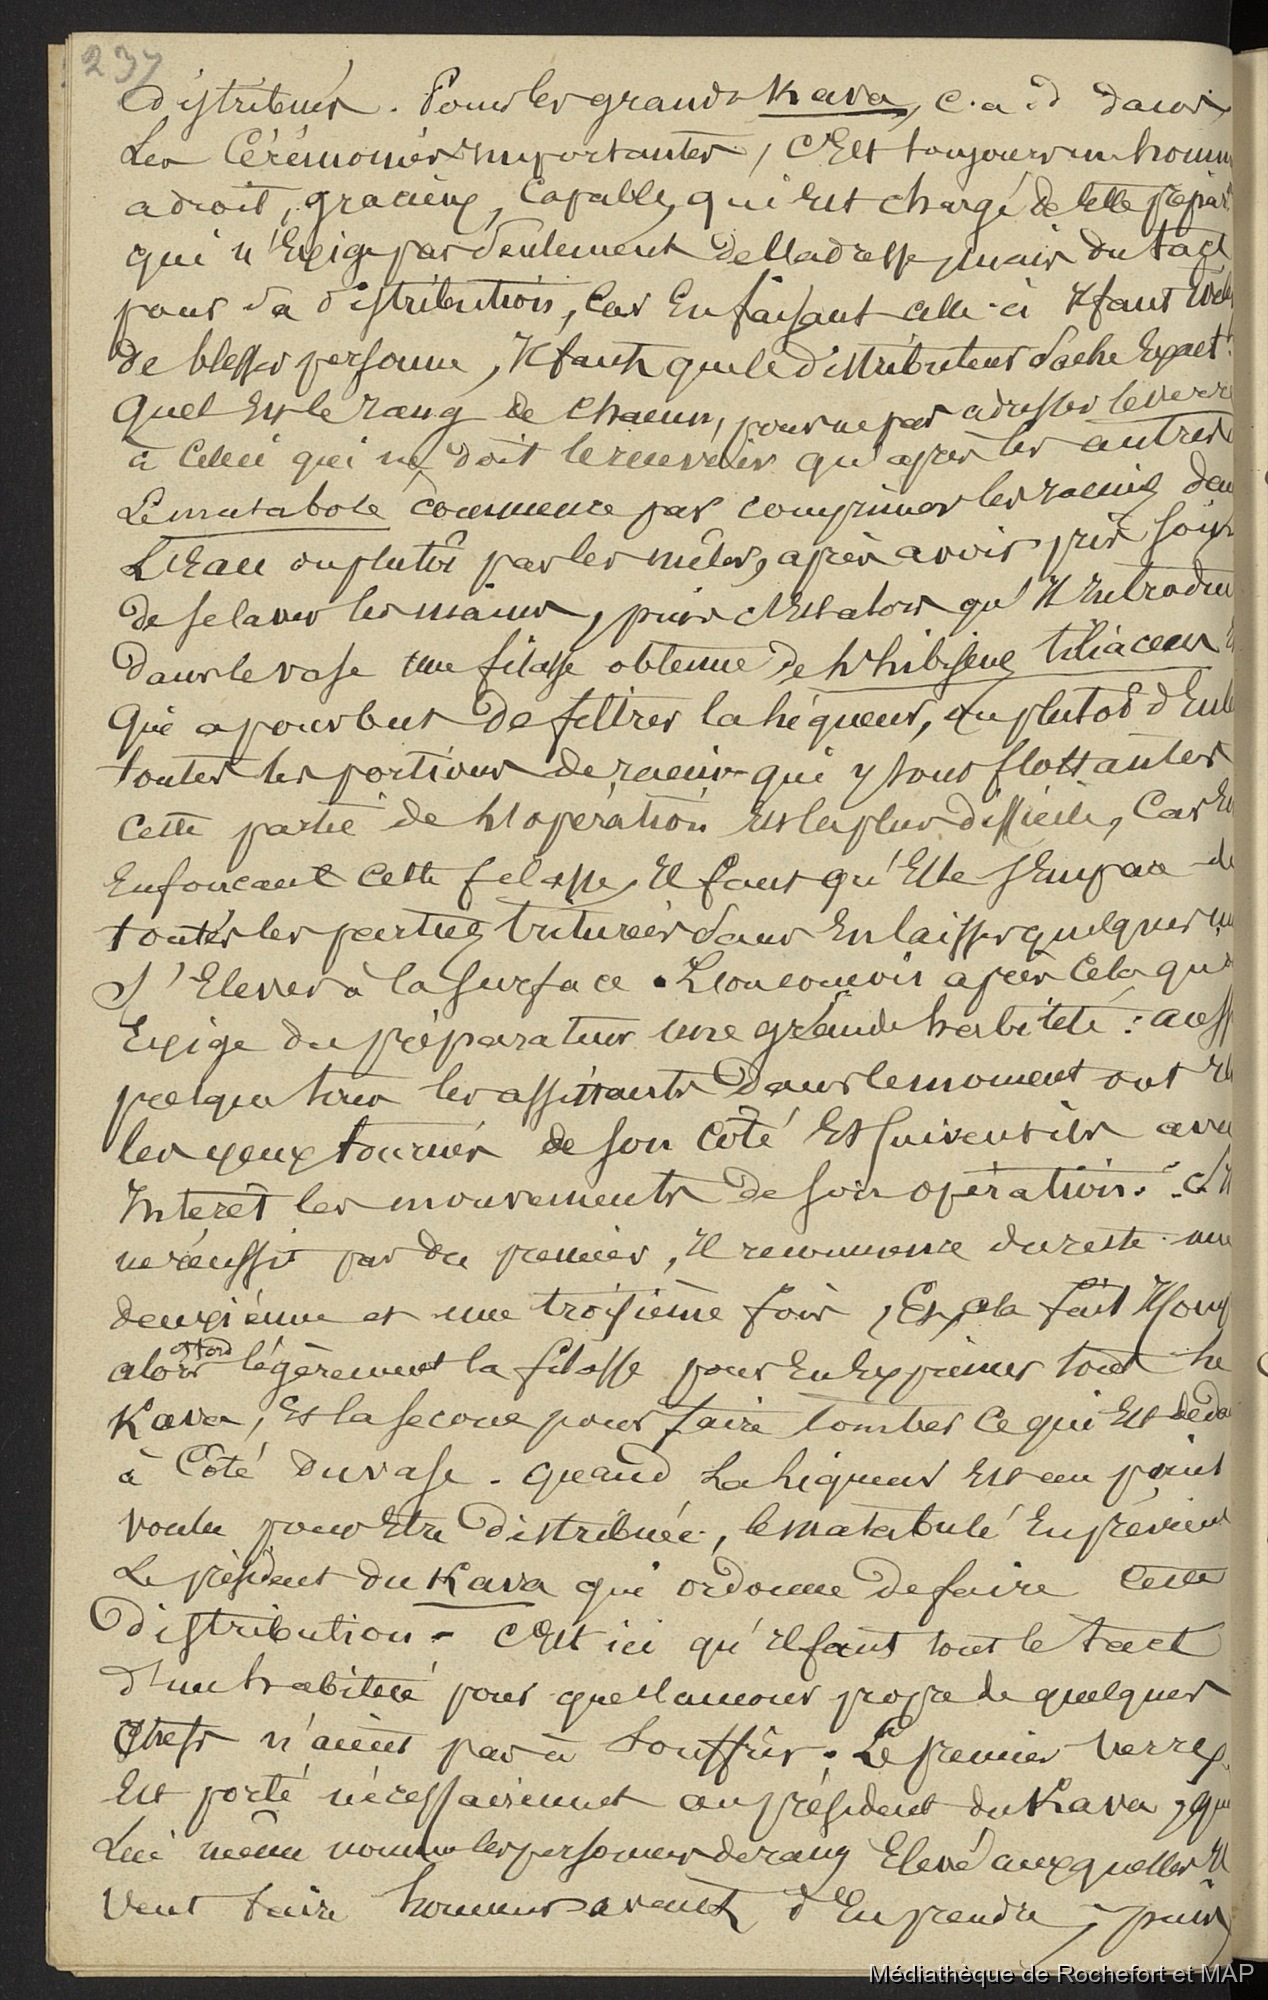 237
distribués. Pour les grands Kava, c. a. d dans
Les Cérémonies importantes, c'Est toujours un homm
adroit, gracieux, Capable, qui Est chargé de cette prépar
qui n'Exige pas seulement de l'adresse, mais du tact
pour sa distribution, Car En faisant celle-ci Il faut
de blesser personne, Il faut que le distributeur sache Exact
Quel Est le rang de chacun, pour ne pas adresser le verre
à Celui qui ne doit le recevoir qu'après les autres
Le matabole commence par comprimer les racines dan
L'Eau ou plutôt par les mêler, après avoir pris soin
de se laver les mains, puis c'Est alors qu'Il Introdui
dans le vase une filasse obtenue de l'hibiscus tiliaceus
Qui a pour but de filtrer la liqueur, ou plutôt d'Enle
toutes les portions de racine qui y sont flottantes
Cette partie de l'opération Est la plus difficile, Car En
Enfoncant Cette filasse, Il faut qu'Elle s'Empare de
toutes les parties triturées sans En laisser quelques un
S'Elever à la surface. L'on concoit après Cela qu'
Exige du préparateur une grande habileté : auss
presque tous les assistants dans le moment ont
les yeux tournés de son coté Et suivent ils avec
Interet les mouvements de son opération. S'Il
ne réussit pas du premier, Il recommence du reste une
deuxième et une troisième fois, Et cela fait Il
alors légèrement la filasse pour En Exprimer tout le
Kava, Et la secoue pour faire tomber Ce qui Est deda
à Côté du vase. Quand La liqueur Est au point
voulu pour Etre distribuée, le matabulé En prévient
Le président du Kava qui ordonne de faire Cette
distribution - C'Est ici qu'Il faut tout le tact
d'une habileté pour que l'amour propre de quelques
Chefs n'aient pas à Souffrir. Le premier verre
Est porté nécessairement au président du Kava, qui
Lui même nomme les personnes de rang Elevé auxquelles Il
Veut faire honneur avant d'En prendre, puis
Médiathèque de Rochefort et MAP